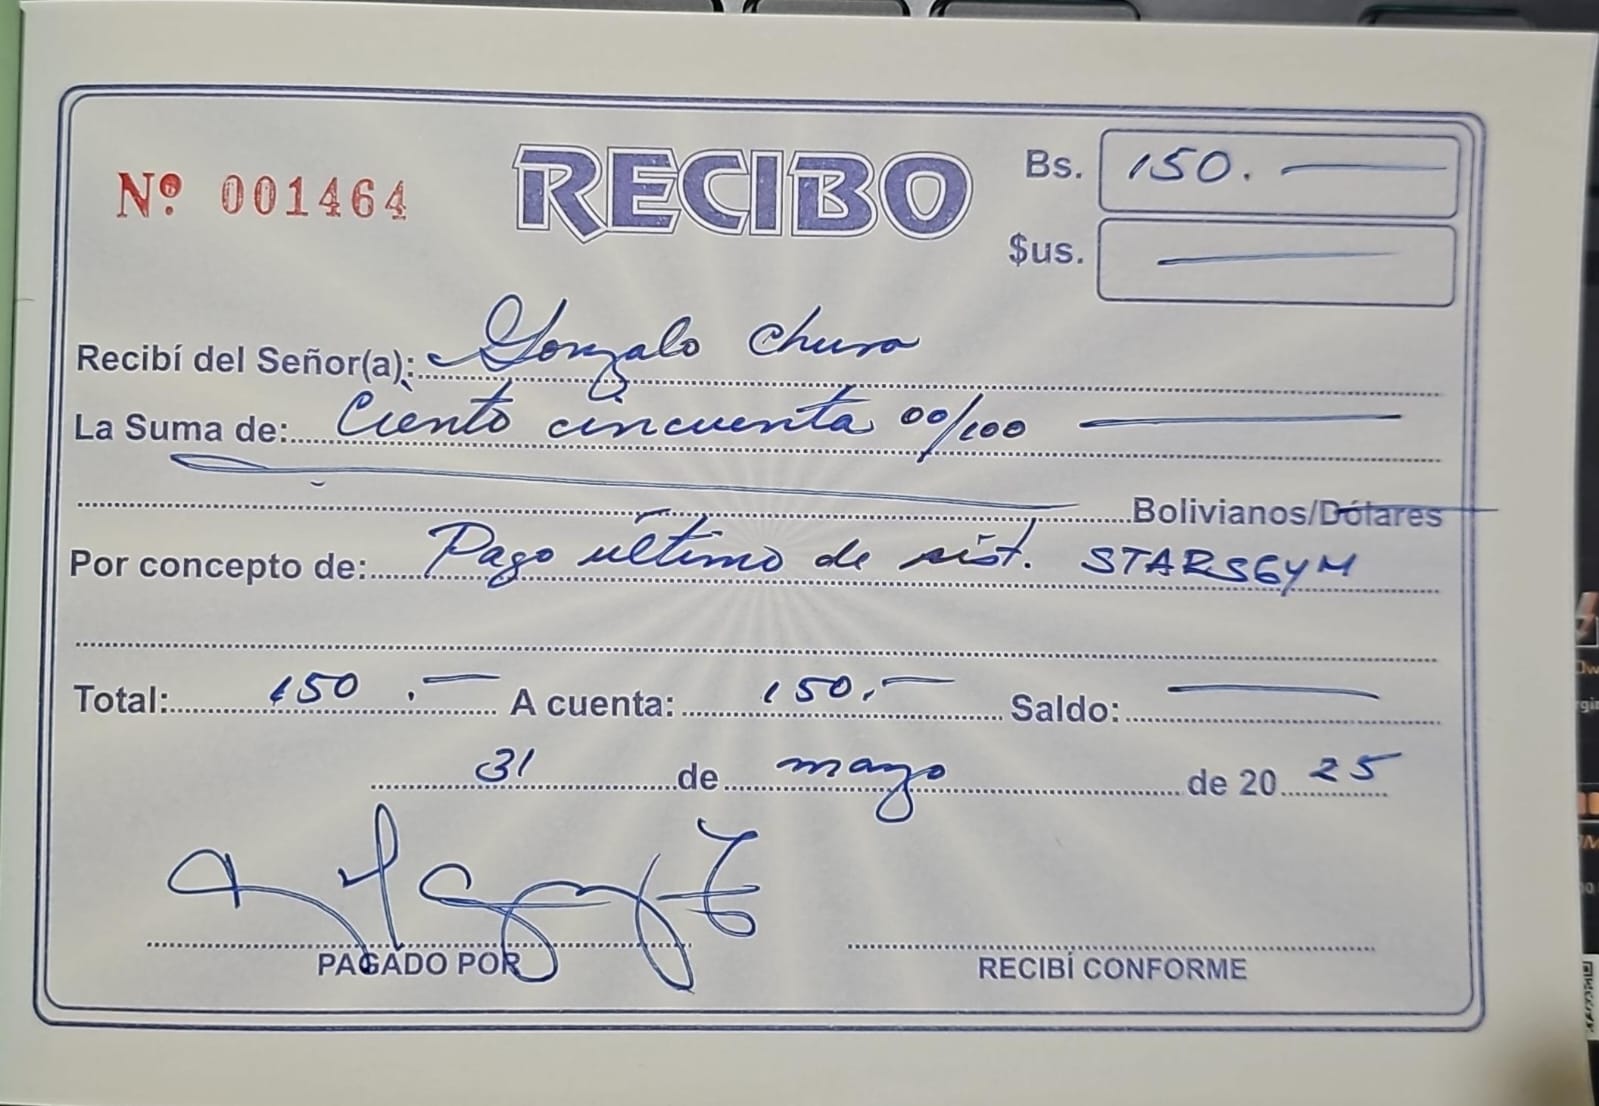 Nº 001464 RECIBO Bs. 150.
$us.
Recibí del Señor(a): Gonzalo Chura
La Suma de: Ciento cincuenta 00/100
Bolivianos/Dólares
Por concepto de: Pago último de sist. STARSGYM
Total: 150.- A cuenta: 150.- Saldo:
31 de mayo de 2025
PAGADO POR RECIBÍ CONFORME